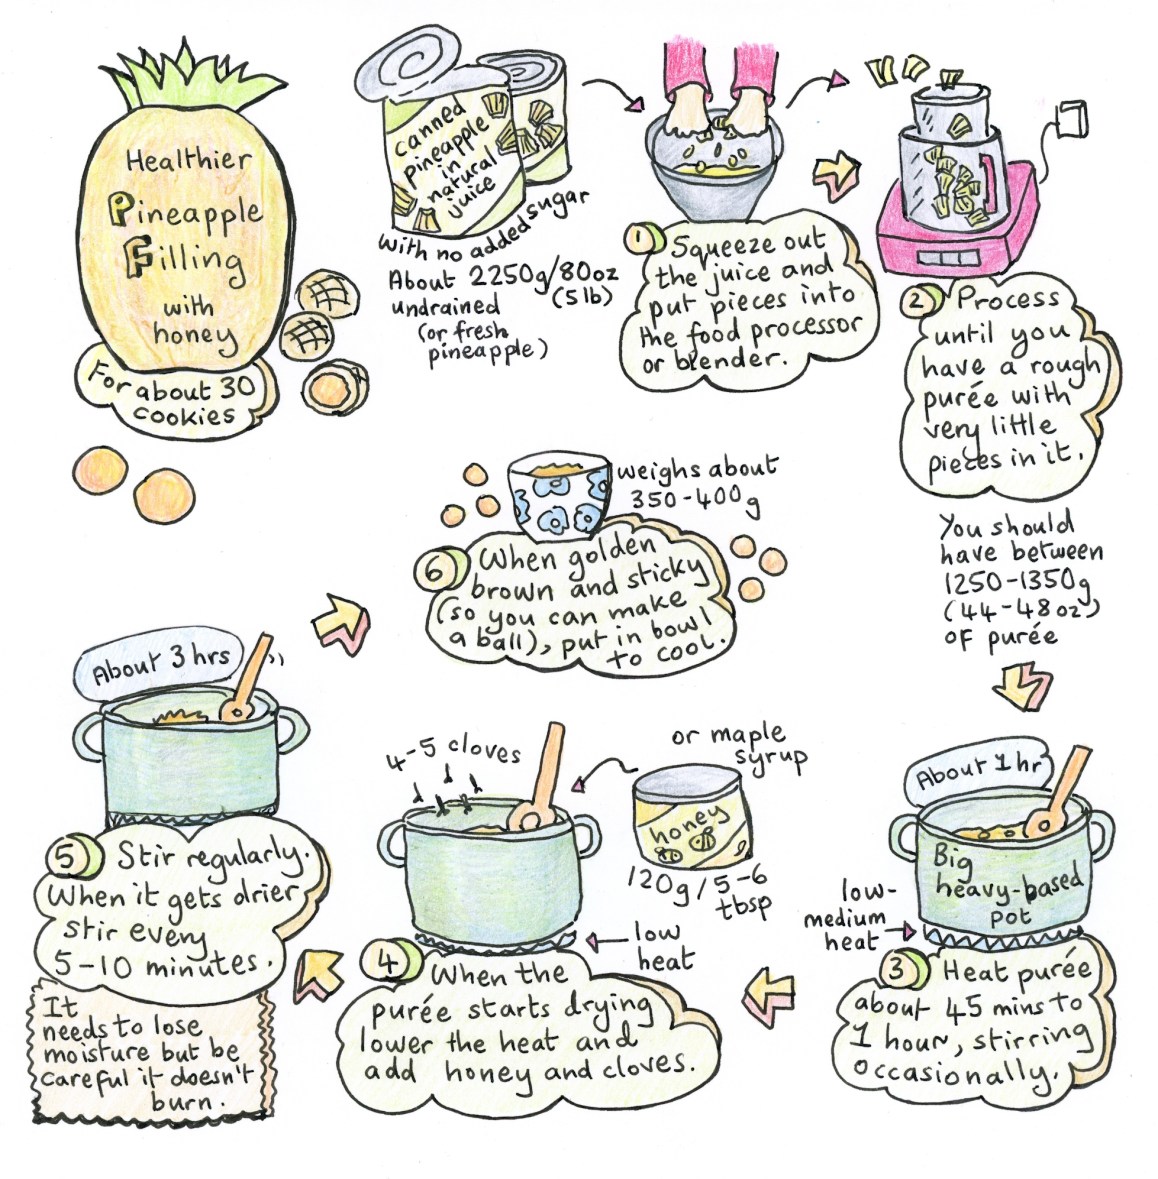 Healthier
Pineapple
Filling
with
honey
For about 30
cookies
canned
pineapple
in
natural
juice
with no added sugar
About 2250g/80oz
(5 lb)
undrained
(or fresh
pineapple)
1 Squeeze out
the juice and
put pieces into
the food processor
or blender.
2 Process
until you
have a rough
purée with
very little
pieces in it.
You should
have between
1250-1350g
(44-48oz)
of purée
About 1 hr
Big
heavy-based
pot
low-
medium
heat
3 Heat purée
about 45 mins to
1 hour, stirring
occasionally.
4-5 cloves
or maple
syrup
honey
120g/5-6
tbsp
low
heat
4 When the
purée starts drying
lower the heat and
add honey and cloves.
About 3 hrs
5 Stir regularly.
When it gets drier
stir every
5-10 minutes.
It
needs to lose
moisture but be
careful it doesn't
burn.
weighs about
350-400g
6 When golden
brown and sticky
(so you can make
a ball), put in bowl
to cool.